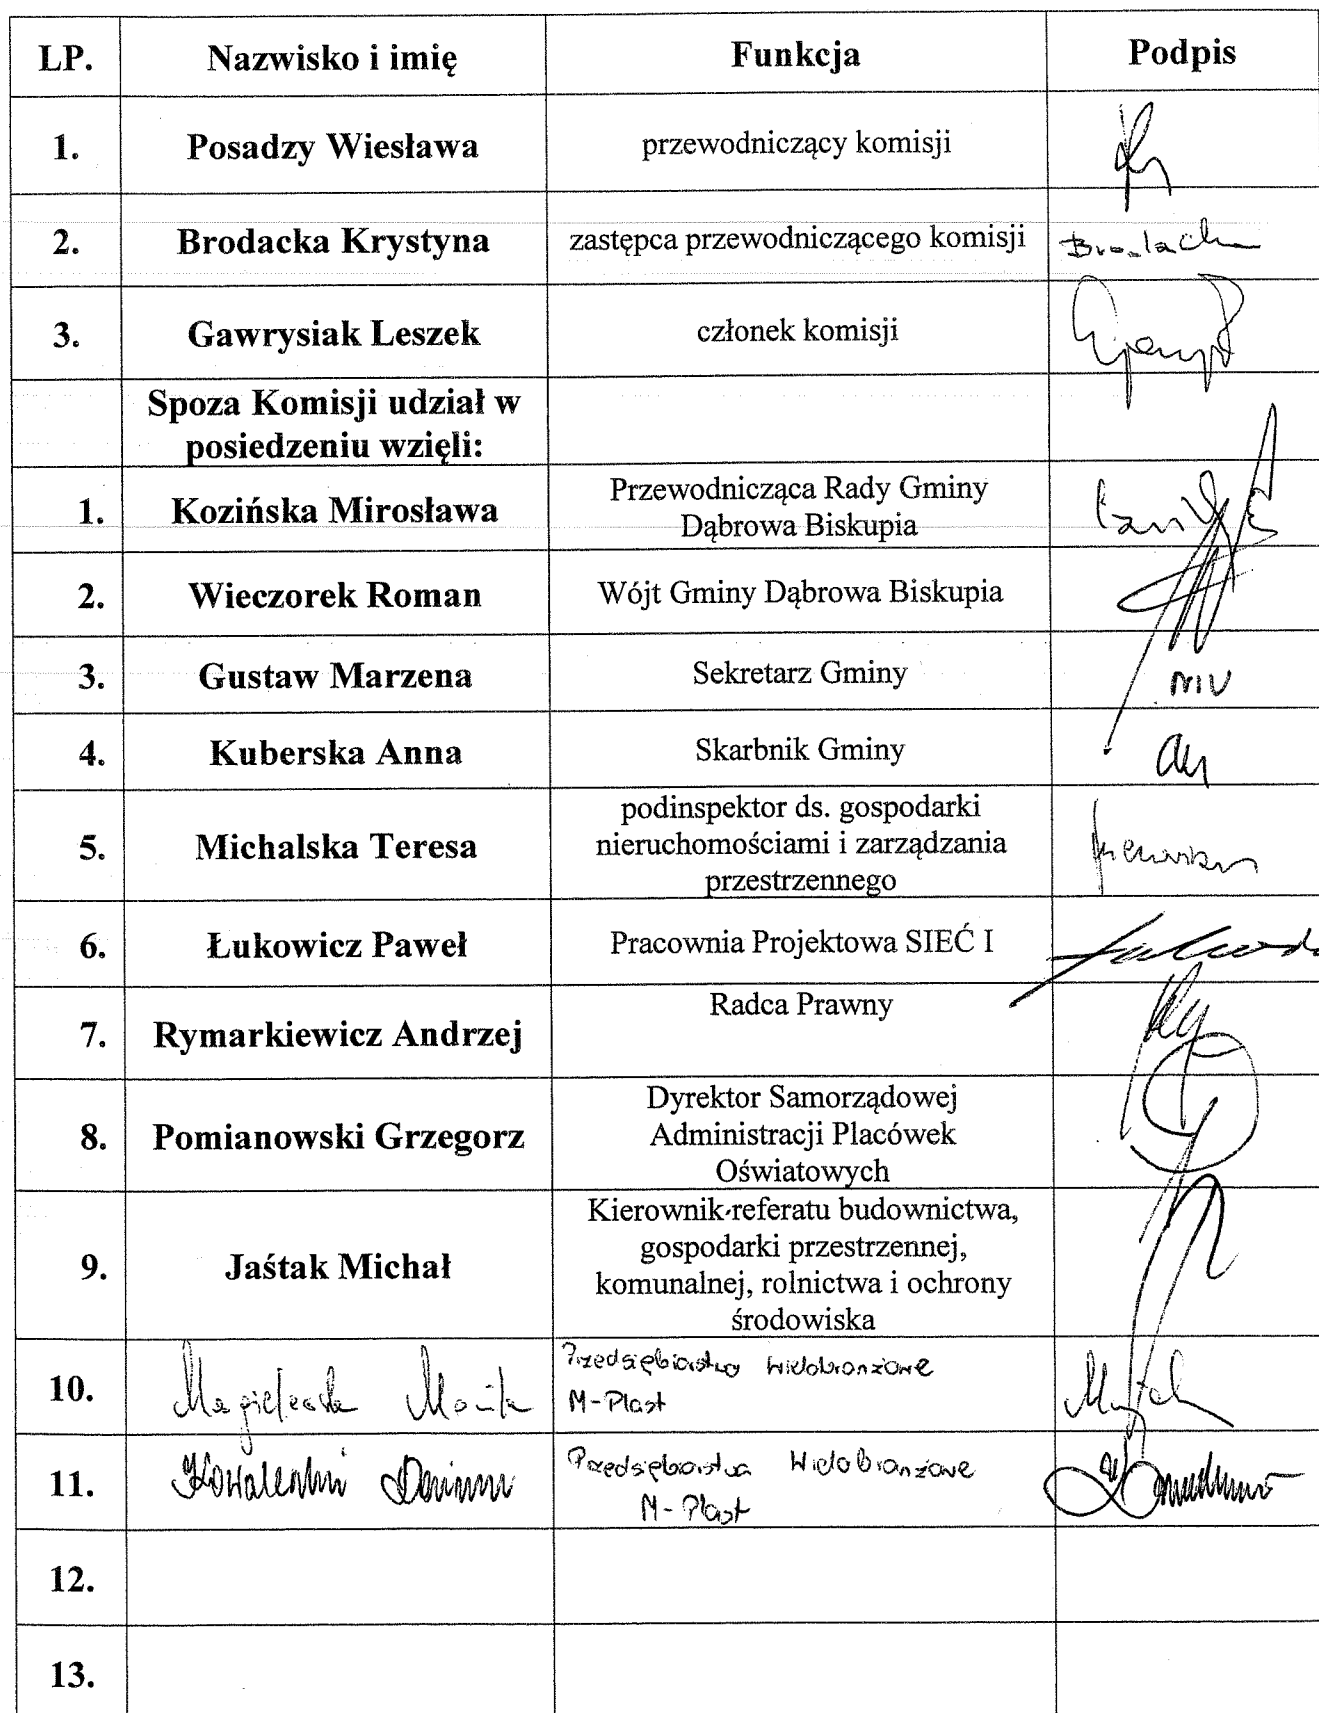 LP. Nazwisko i imię Funkcja Podpis
1. Posadzy Wiesława przewodniczący komisji
2. Brodacka Krystyna zastępca przewodniczącego komisji
3. Gawrysiak Leszek członek komisji
Spoza Komisji udział w
posiedzeniu wzięli:
1. Kozińska Mirosława Przewodnicząca Rady Gminy
Dąbrowa Biskupia
2. Wieczorek Roman Wójt Gminy Dąbrowa Biskupia
3. Gustaw Marzena Sekretarz Gminy
4. Kuberska Anna Skarbnik Gminy
5. Michalska Teresa podinspektor ds. gospodarki
nieruchomościami i zarządzania
przestrzennego
6. Łukowicz Paweł Pracownia Projektowa SIEĆ I
7. Rymarkiewicz Andrzej Radca Prawny
8. Pomianowski Grzegorz Dyrektor Samorządowej
Administracji Placówek
Oświatowych
9. Jaśtak Michał Kierownik referatu budownictwa,
gospodarki przestrzennej,
komunalnej, rolnictwa i ochrony
środowiska
10. Przedsiębiorstwo Wielobranżowe
M-Plast
11. Przedsiębiorstwa Wielobranżowe
M-Plast
12.
13.